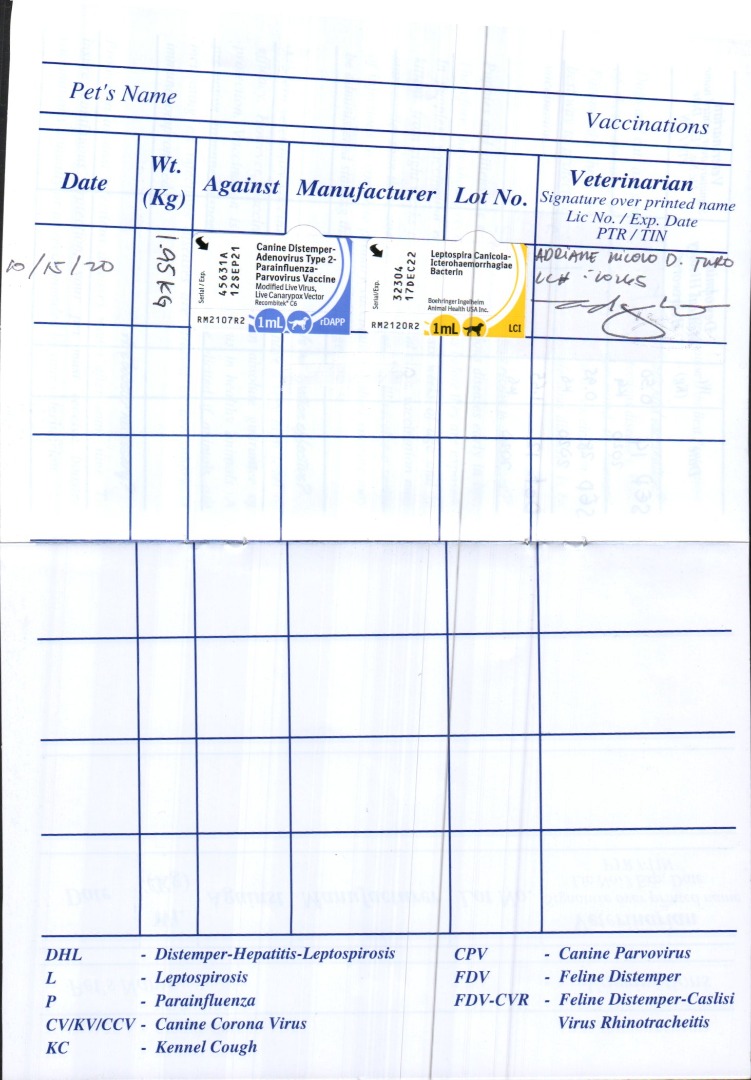 Pet's Name
Vaccinations
Date
Wt.
(Kg)
Against
Manufacturer
Lot No.
Veterinarian
Signature over printed name
Lic No. / Exp. Date
PTR / TIN
10/15/20
1.95kg
Serial / Exp.
45631A
12SEP21
Canine Distemper-
Adenovirus Type 2-
Parainfluenza-
Parvovirus Vaccine
Modified Live Virus,
Live Canarypox Vector
Recombitek® C6
RM2107R2
1mL
rDAPP
Serial/Exp.
32304
17DEC22
Leptospira Canicola-
Icterohaemorrhagiae
Bacterin
Boehringer Ingelheim
Animal Health USA Inc.
RM2120R2
1mL
LCI
ADRIANE NICOLO D. TURO
DHL - Distemper-Hepatitis-Leptospirosis
L - Leptospirosis
P - Parainfluenza
CV/KV/CCV - Canine Corona Virus
KC - Kennel Cough
CPV - Canine Parvovirus
FDV - Feline Distemper
FDV-CVR - Feline Distemper-Caslisi
Virus Rhinotracheitis